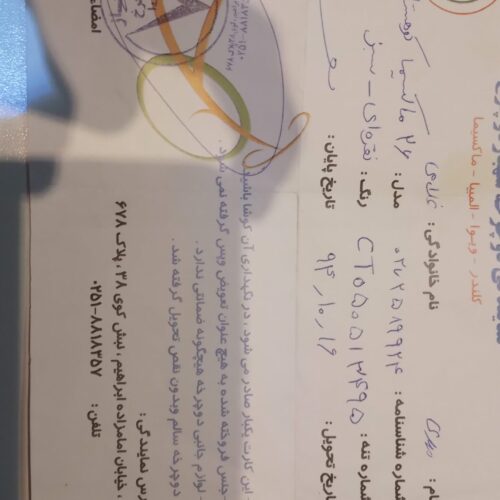 کلندر - ویوا - المپیا - ماکسیما
نام خانوادگی:
شماره شناسنامه: ۰۳۷۲۵۸۹۹۲۴ مدل: ۲۶ ماکسیما
شماره تنه: CT۵۵۰۵۱۲۴۹۵ رنگ: نقره‌ای - سبز
تاریخ تحویل: ۹۴،۱۰،۱۶ تاریخ پایان:
این کارت یکبار صادر می شود، در نگهداری آن کوشا باشید.
جنس فروخته شده به هیچ عنوان تعویض وپس گرفته نمی شود.
- لوازم جانبی دوچرخه هیچگونه ضمانتی ندارد.
دوچرخه سالم وبدون نقص تحویل گرفته شد.
رس نمایندگی: امضاء
، خیابان امامزاده ابراهیم، نبش کوی ۳۸، پلاک ۶۷۸
تلفن: ۰۲۵۱-۸۸۱۸۳۵۷